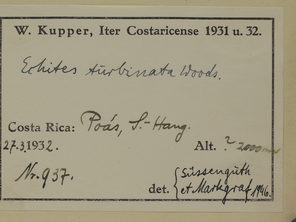 W. Kupper, Iter Costaricense 1931 u. 32.
Echites turbinata Woods.
Costa Rica: Poás, S.-Hang.
27.3.1932. Alt. ? 2000 m
Nr. 937. det. Süssenguth
et Markgraf 1946.